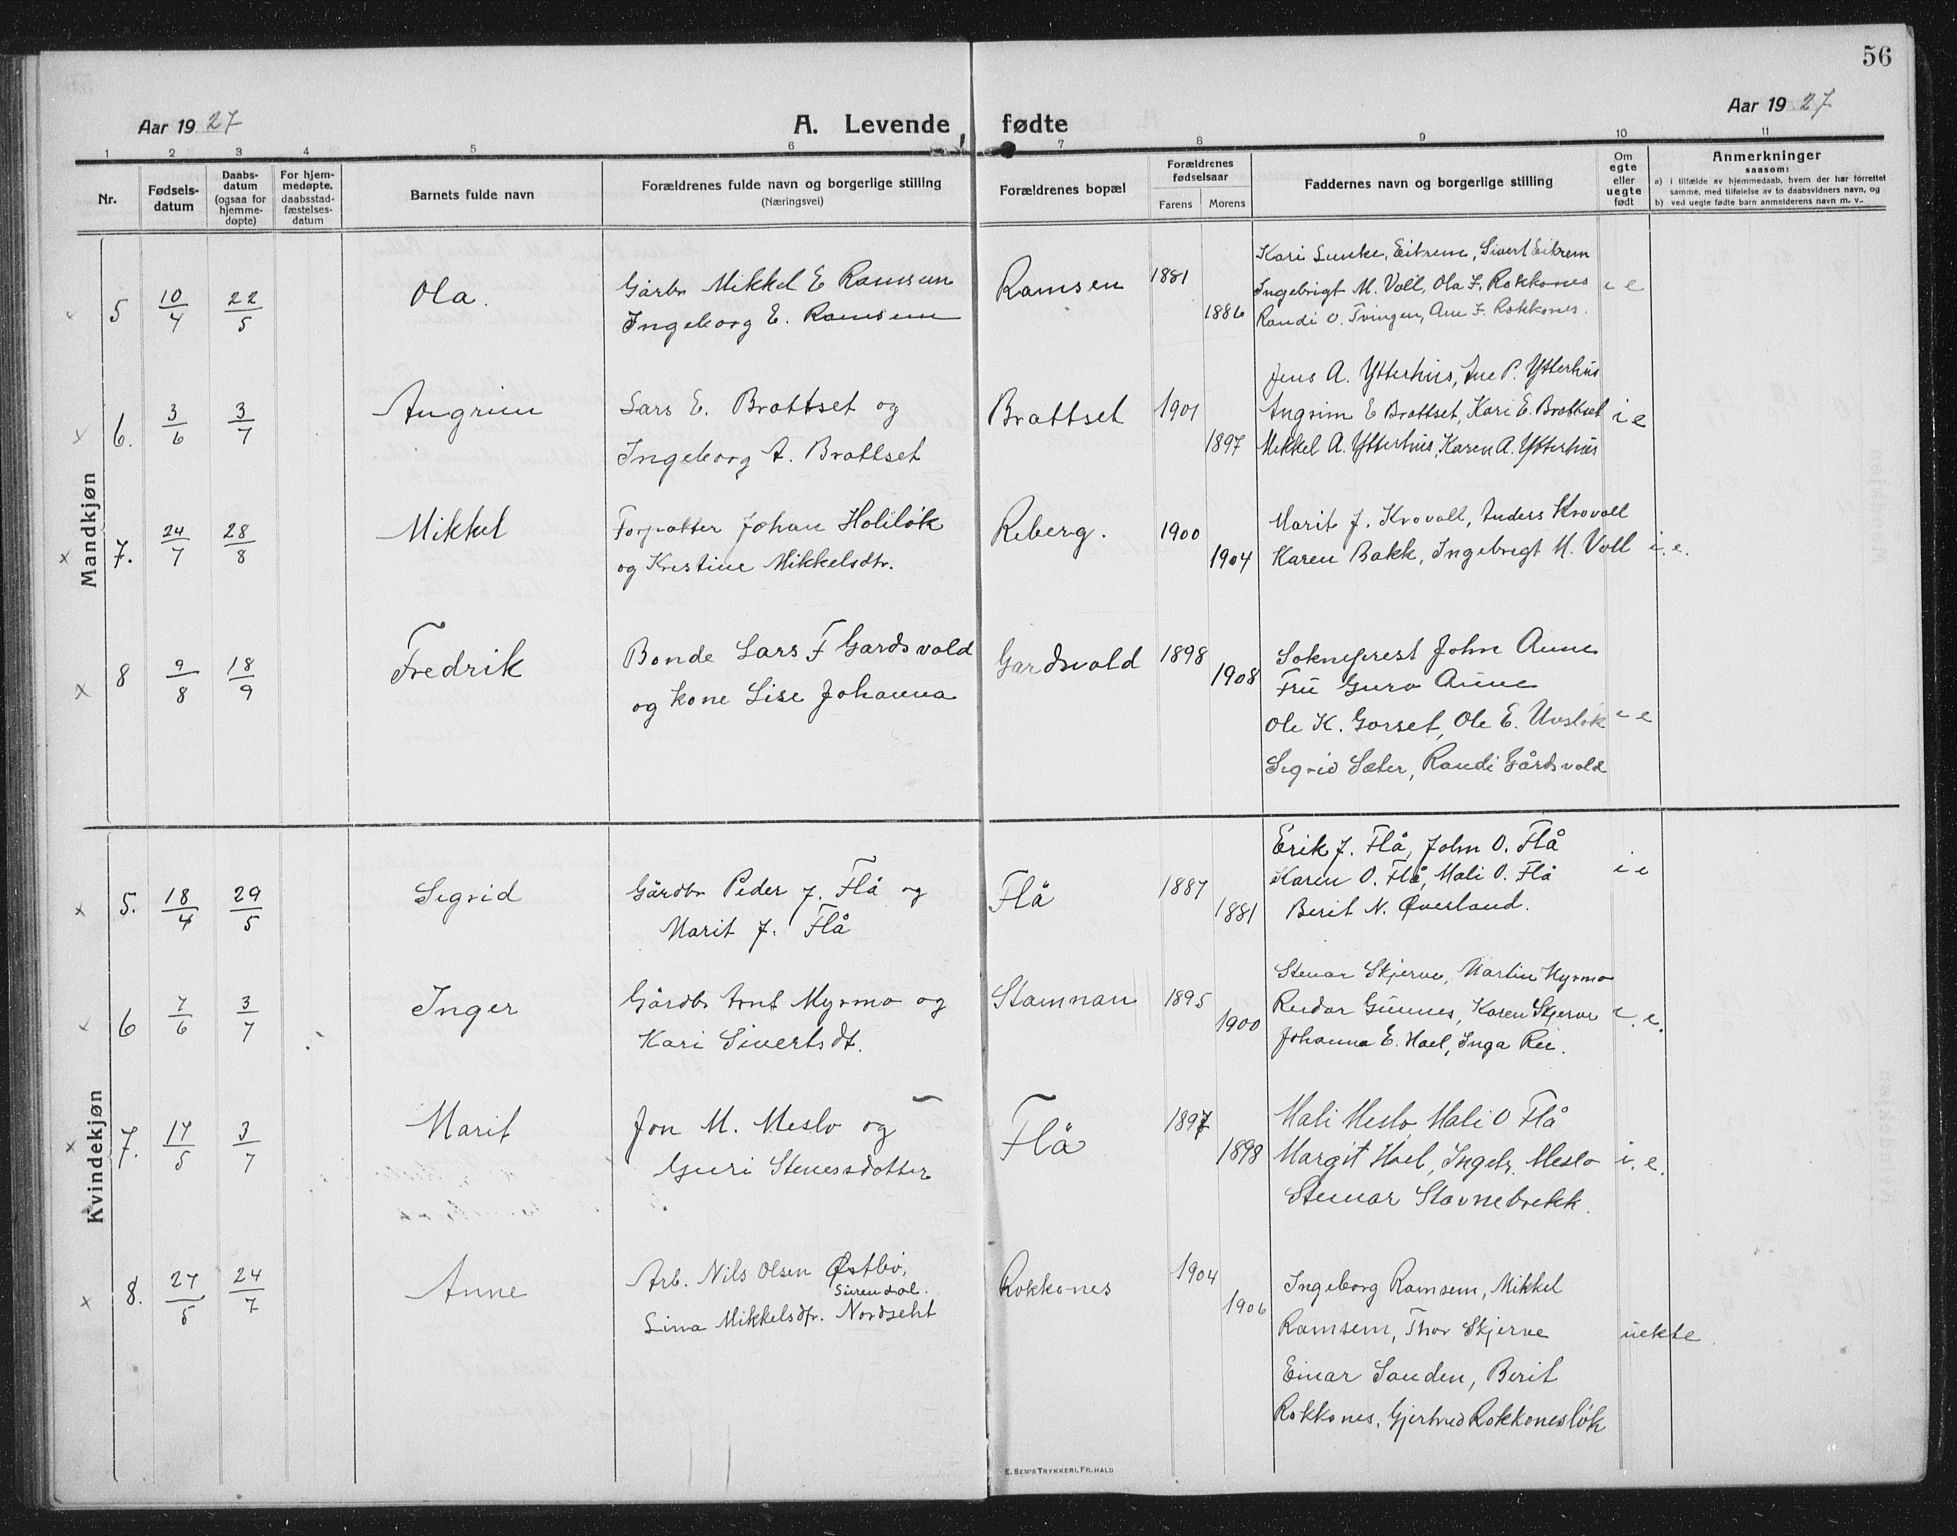 56
Aar 1927
A. Levende fødte
Aar 1927
1 2 3 4 5 6 7 8 9 10 11
Nr.
Fødsels-
datum
Daabs-
datum
(ogsaa for
hjemme-
døpte)
For hjem-
medøpte,
daabsstad-
fæstelses-
datum
Barnets fulde navn
Forældrenes fulde navn og borgerlige stilling
(Næringsvei)
Forældrenes bopæl
Forældrenes
fødselsaar
Farens Morens
Faddernes navn og borgerlige stilling
Om
egte
eller
uegte
født
Anmerkninger
saasom:
a) i tilfælde av hjemmedaab, hvem der har forrettet
samme, med tilføielse av to daabsvidners navn, og
b) ved uegte fødte barn anmelderens navn m. v..
Mandkjøn
5 10/4 22/5 Ola.
Gårbr Mikkel E Ramsem
Ingeborg E. Ramsem
Ramsen 1881 1886
Kari Lunke, Eitrem, Sivert Eitrem
Ingebrigt M. Voll, Ola F. Rokkones
Randi O. Tvingen, Ane F. Rokkones.
i e
x 6. 3/6 3/7 Angrim
Lars E. Brattset og
Ingeborg A. Brattset
Brattset 1901 1897
Jens A. Ytterhus, Ane P. Ytterhus
Angrim E Brattset, Kari E. Brattset
Mikkel A. Ytterhus, Karen A. Ytterhus
i e
x 7. 24/7 28/8 Mikkel
Forpakter Johan Holiløk
og Kristine Mikkelsdtr.
Reberg. 1900 1904
Marit J. Krovoll, Anders Krovoll
Karen Bakk, Ingebrigt M. Voll
i. e.
x 8 9/8 18/9 Fredrik
Bonde Lars F Gardsvold
og kone Lise Johanna
Gardsvold 1898 1908
Sokneprest John Aune
Fru Guro Aune
Ole K. Gorset, Ole E. Uvsløk
Sigrid Sæter, Randi Gårdsvold
i e
Kvindekjøn
x 5. 18/4 29/5 Sigrid
Gårdbr Peder J. Flå og
Marit J. Flå
Flå 1887 1881
Erik J. Flå, John O. Flå
Karen O. Flå, Mali O. Flå
Berit N. Øverland.
i e
x 6 7/6 3/7 Inger
Gårdbr Arnt Myrmo og
Kari Sivertsdt.
Stamnan 1895 1900
Stenar Skjerve, Martin Myrmo
Reidar Gunnes, Karen Skjerve
Johanna E. Hoel, Inga Rie.
i. e.
x 7. 17/5 3/7 Marit
Jon M. Meslo og
Guri Stenersdotter
Flå 1897 1898
Mali Meslo Mali O Flå
Margit Hoel, Ingebr. Meslo
Stenar Stavnebrekk.
i. e.
x 8. 27/5 24/7 Anne
Arb. Nils Olsen Østbø,
Surendal.
Lina Mikkelsdtr. Nordseht
Rokkones 1904 1906
Ingeborg Ramsem, Mikkel
Ramsem, Thor Skjerve
Einar Sanden, Berit
Rokkones, Gjertrud Rokkonesløk
uekte.
E. SEM'S TRYKKERI, FR. HALD